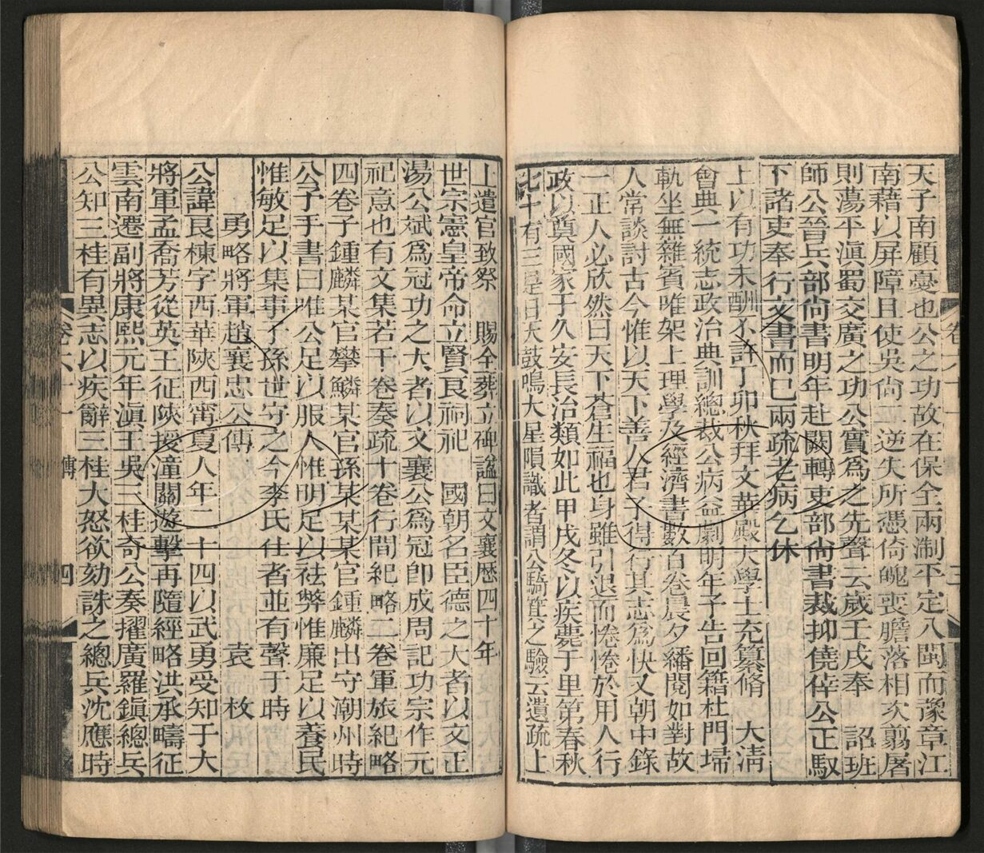 天子南顧憂也公之功故在保全兩淛平定八閩而豫章江
南藉以屏障且使吳尚二逆失所憑倚魄喪膽落相次翦屠
則蕩平滇蜀交廣之功公實爲之先聲云歲壬戌奉 詔班
師公晉兵部尚書明年赴闕轉吏部尚書裁抑僥倖公正馭
下諸吏奉行文書而已兩疏老病乞休
上以有功未酬不許丁卯秋拜文華殿大學士充纂脩 大淸
會典一統志政治典訓總裁公病益劇明年予告回籍杜門埽
軌坐無雜賓唯架上理學及經濟書數百卷晨夕繙閱如對故
人常談討古今惟以天下善人君子得行其志爲快又朝中錄
一正人必欣然曰天下蒼生福也身雖引退而惓惓於用人行
政以奠國家于久安長治類如此甲戌冬以疾薨于里第春秋
七十有三是日天鼓鳴大星隕識者謂公騎箕之驗云遺疏上
上遣官致祭 賜全葬立碑諡曰文襄歴四十年
世宗憲皇帝命立賢良祠祀 國朝名臣德之大者以文正
湯公斌爲冠功之大者以文襄公爲冠卽成周記功宗作元
祀意也有文集若干卷奏疏十卷行間紀略二卷軍旅紀略
四卷子鍾麟某官攀鱗某官孫某某某官鍾麟出守潮州時
公子手書曰惟公足以服人惟明足以祛弊惟廉足以養民
惟敏足以集事子孫世守之今李氏仕者並有聲于時
勇略將軍趙襄忠公傳 袁枚
公諱良棟字西華陝西甯夏人年二十四以武勇受知于大
將軍孟喬芳從英王征陝授潼關遊擊再隨經略洪承疇征
雲南遷副將康熙元年滇王吳三桂奇公奏擢廣羅鎮總兵
公知三桂有異志以疾辭三桂大怒欲劾誅之總兵沈應時
卷六十一 傳 四